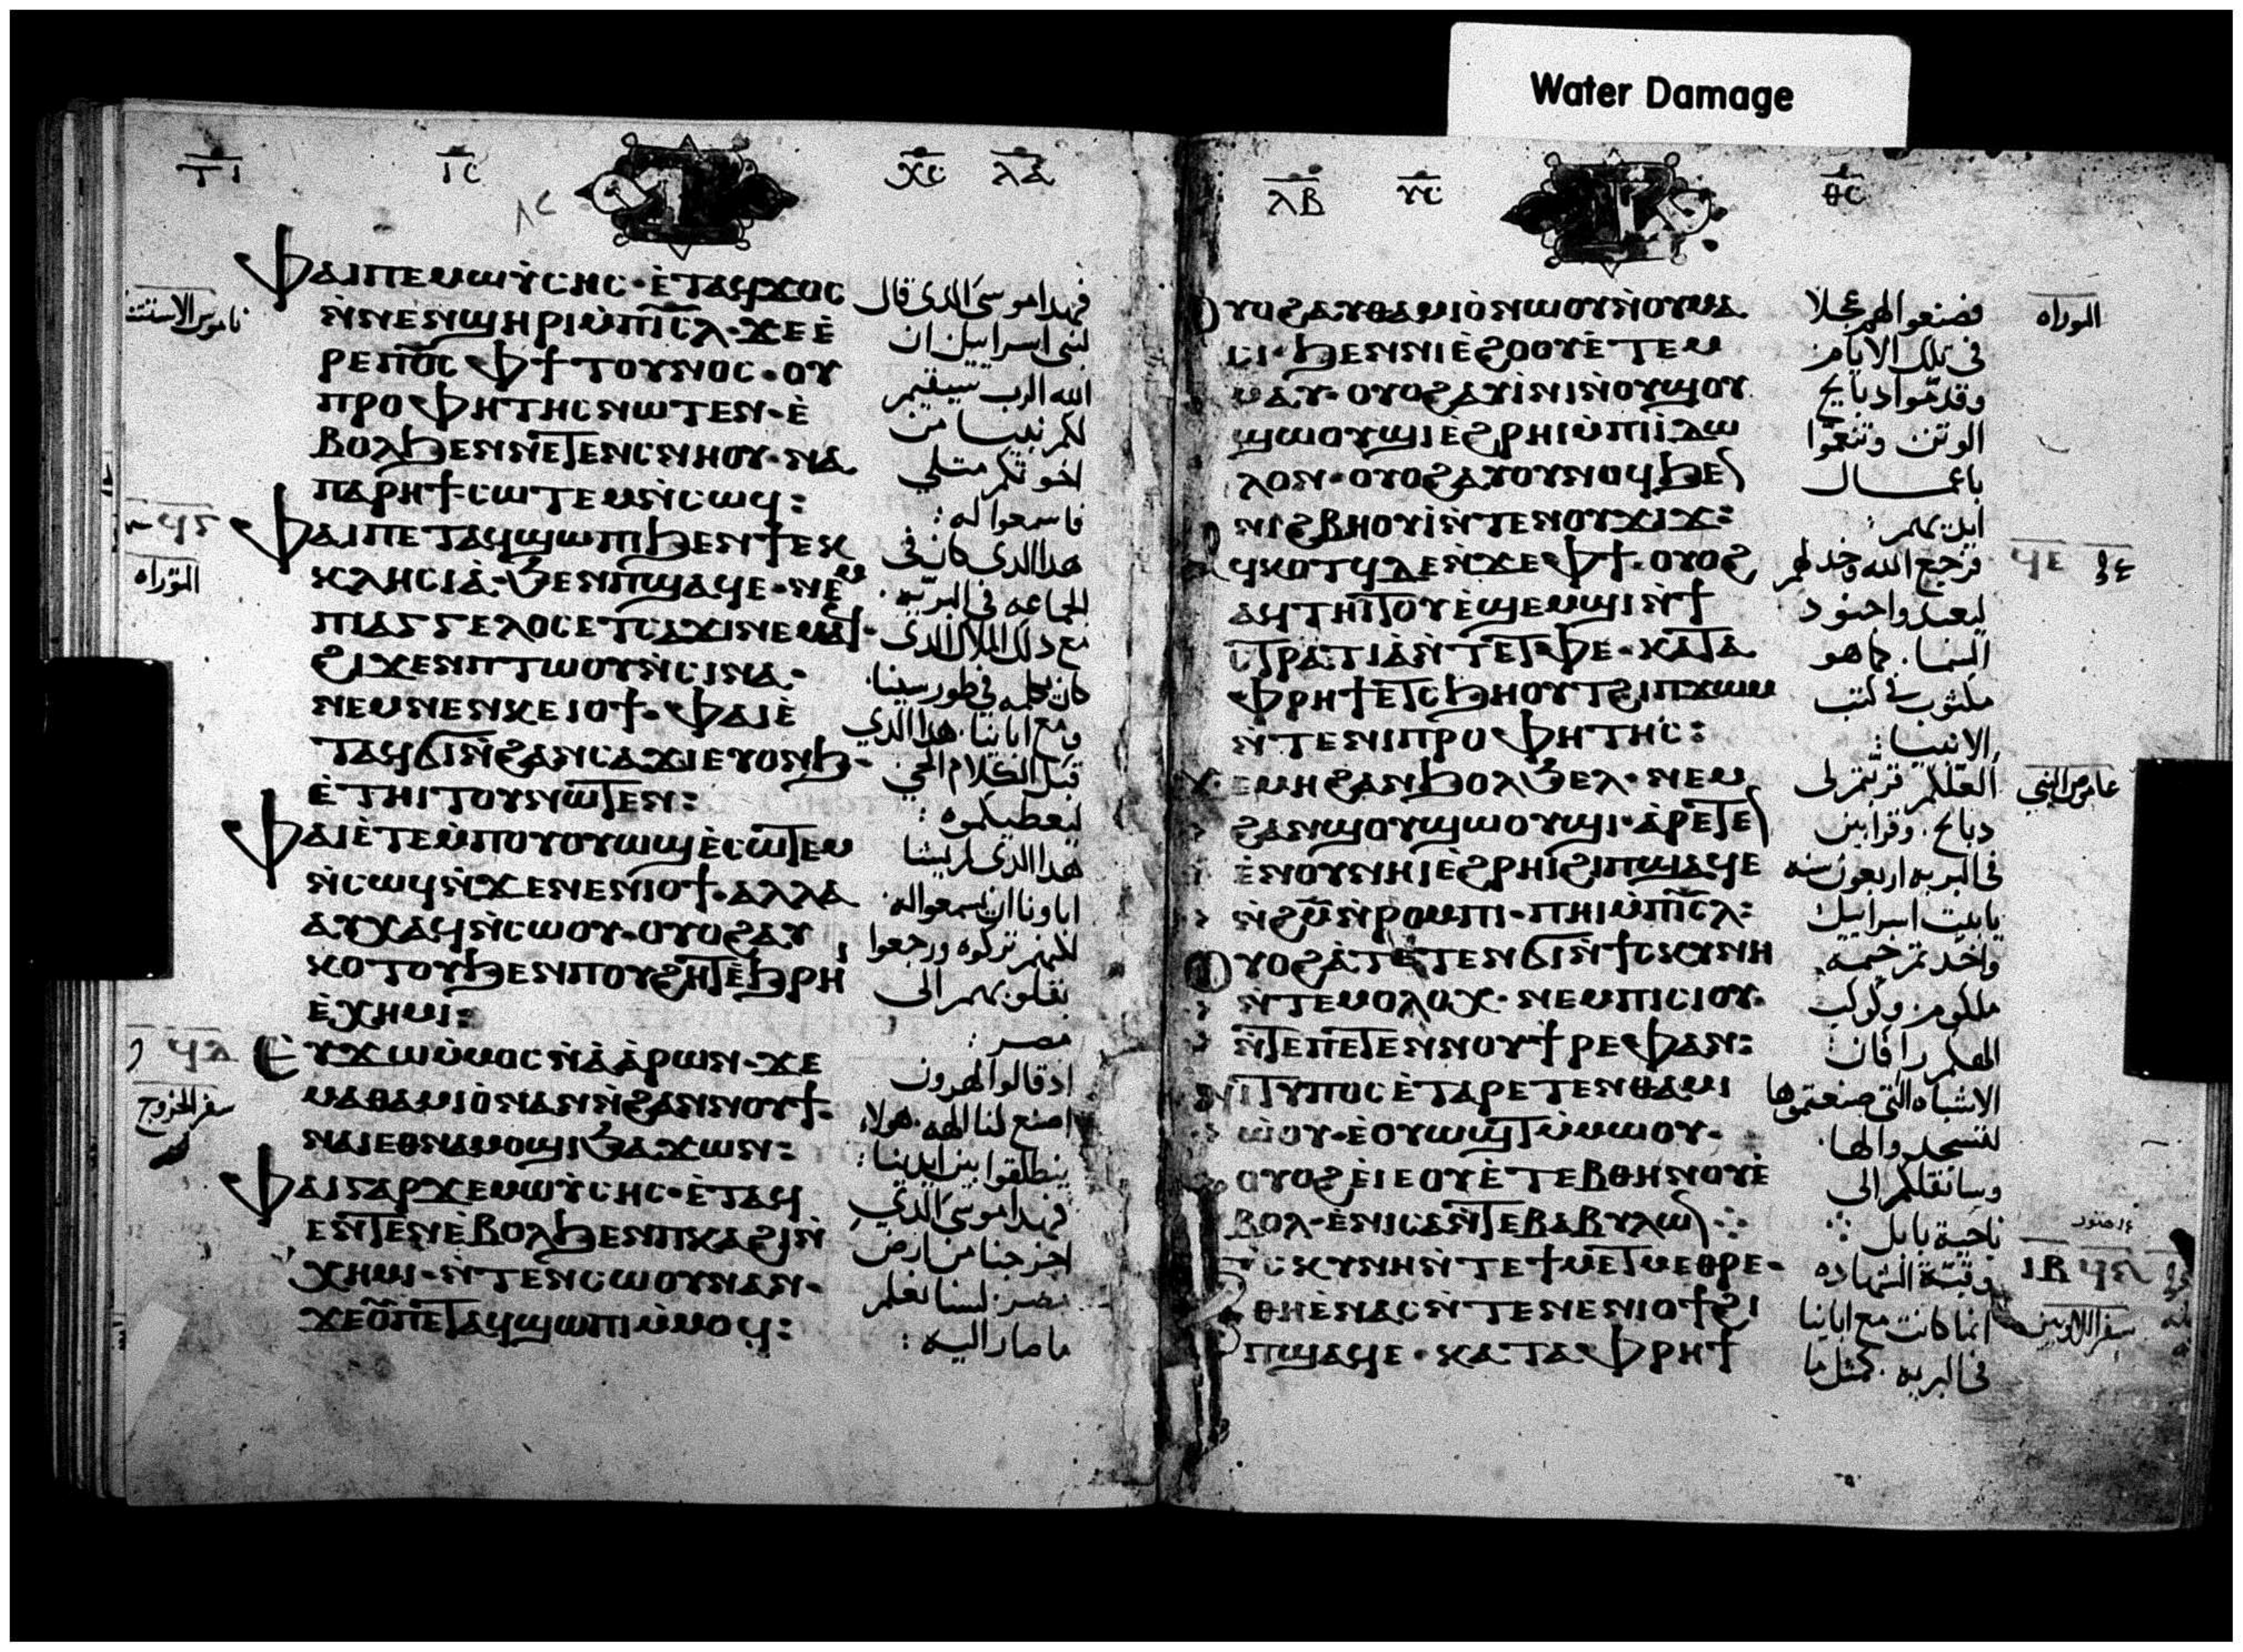 Water Damage
ⲓ̅ⲥ̅ ⲭ̅ⲥ̅ ⲗ̅ⲁ̅
ⲫⲁⲓⲡⲉⲙⲱⲩ̀ⲥⲏⲥ·ⲉ̀ⲧⲁϥϫⲟⲥ
ⲛ̀ⲛⲉⲛϣⲏⲣⲓⲙ̀ⲡⲓ̅ⲥ̅ⲗ̅·ϫⲉⲉ̀
ⲣⲉⲡϭ̅ⲟ̅ⲓ̅ⲥ̅ ⲫϯⲧⲟⲩⲛⲟⲥ·ⲟⲩ
ⲡⲣⲟⲫⲏⲧⲏⲥⲛⲱⲧⲉⲛ·ⲉ̀
ⲃⲟⲗϧⲉⲛⲛⲉⲧⲉⲛⲥⲛⲏⲟⲩ·ⲙ̀ⲁ
ⲡⲁⲣⲏϯ·ⲥⲱⲧⲉⲙⲛ̀ⲥⲱϥ:
ⲫⲁⲓⲡⲉⲧⲁϥϣⲱⲡⲓϧⲉⲛϯⲉⲕ
ⲕⲗⲏⲥⲓⲁ̀·ϩⲉⲛⲡϣⲁϥⲉ·ⲛⲉⲙ
ⲡⲓⲁⲅⲅⲉⲗⲟⲥⲉⲧⲥⲁϫⲓⲛⲉⲙⲁϥ·
ϩⲓϫⲉⲛⲡⲧⲱⲟⲩⲛ̀ⲥⲓⲛⲁ·
ⲛⲉⲙⲛⲉⲛⲕⲉⲓⲟϯ·ⲫⲁⲓⲉ̀
ⲧⲁϥϭⲓⲛ̀ϩⲁⲛⲥⲁϫⲓⲉⲩⲟⲛϧ·
ⲉ̀ⲧⲏⲓⲧⲟⲩⲛⲱⲧⲉⲛ:
ⲫⲁⲓⲉ̀ⲧⲉⲙ̀ⲡⲟⲩⲟⲩⲱϣⲉ̀ⲥⲱⲧⲉⲙ
ⲛ̀ⲥⲱϥⲛ̀ϫⲉⲛⲉⲛⲓⲟϯ·ⲁⲗⲗⲁ
ⲁⲩⲭⲁϥⲛ̀ⲥⲱⲟⲩ·ⲟⲩⲟϩⲁⲩ
ⲕⲟⲧⲟⲩϧⲉⲛⲡⲟⲩϩⲏⲧⲉ̀ϧⲣⲏⲓ
ⲉ̀ⲭⲏⲙⲓ:
ⲉ̀ⲩϫⲱⲙ̀ⲙⲟⲥⲛ̀ⲁ̀ⲁ̀ⲣⲱⲛ·ϫⲉ
ⲙⲁⲑⲁⲙⲓⲟ̀ⲛⲁⲛⲛ̀ϩⲁⲛⲛⲟⲩϯ·
ⲛⲁⲓⲉⲑⲛⲁⲙⲟϣⲓϩⲁϫⲱⲛ:
ⲫⲁⲓⲅⲁⲣϫⲉⲙⲱⲩ̀ⲥⲏⲥ·ⲉ̀ⲧⲁϥ
ⲉⲛⲧⲉⲛⲉ̀ⲃⲟⲗϧⲉⲛⲡⲕⲁϩⲓⲛ̀
ⲭⲏⲙⲓ·ⲛ̀ⲧⲉⲛⲥⲱⲟⲩⲛⲁⲛ·
ϫⲉⲟ̅ⲩ̅ⲡⲉⲧⲁϥϣⲱⲡⲓⲙ̀ⲙⲟϥ:
فهدا موسى الدى قال
لبنى اسراييل ان
الله الرب سيقيم
لكم نبيا من
اخوتكم متلي
فاسمعوا له:
هدا الدى كان فى
الجماعه فى البريه.
مع دلك الملاك الدى
كان يكلمه فى طور سينا.
ومع اباينا. هدا الدي
قبل الكلام الحي
ليعطيكموه:
هدا الدى لم يشا
اباونا ان يسمعوا له.
لكنهم تركوه ورجعوا
بقلوبهم الى
مصر:
اد قالوا لهرون
اصنع لنا الهه. هولاء
ينطلقوا بين ايدينا:
فهدا موسى الدي
اخرجنا من ارض
مصر. لسنا نعلم
ما صار اليه:
التوراه
سفر الخروج
ⲗ̅ⲃ̅ ⲩ̅ⲥ̅ ⲑ̅ⲥ̅
ⲟⲩⲟϩⲁⲩⲑⲁⲙⲓⲟ̀ⲛⲱⲟⲩⲛ̀ⲟⲩⲙⲁ
ⲥⲓ·ϧⲉⲛⲛⲓⲉ̀ϩⲟⲟⲩⲉ̀ⲧⲉⲙ
ⲙⲁⲩ·ⲟⲩⲟϩⲁⲩⲓ̀ⲛⲓⲛ̀ⲟⲩϣⲟⲩ
ϣⲱⲟⲩϣⲓⲉ̀ϩⲣⲏⲓⲙ̀ⲡⲓⲓ̀ⲇⲱ
ⲗⲟⲛ·ⲟⲩⲟϩⲁⲩⲟⲩⲛⲟϥϧⲉⲛ
ⲛⲓϩⲃⲏⲟⲩⲓ̀ⲛ̀ⲧⲉⲛⲟⲩϫⲓϫ:
ⲁϥⲕⲟⲧϥⲇⲉⲛ̀ϫⲉⲫϯ·ⲟⲩⲟϩ
ⲁϥⲧⲏⲓⲧⲟⲩⲉ̀ϣⲉⲙϣⲓⲛ̀ϯ
ⲥⲧⲣⲁⲧⲓⲁ̀ⲛ̀ⲧⲉⲧⲫⲉ·ⲕⲁⲧⲁ
ⲫⲣⲏϯⲉⲧⲥϧⲏⲟⲩⲧϩⲓⲡϫⲱⲙ
ⲛ̀ⲧⲉⲛⲓⲡⲣⲟⲫⲏⲧⲏⲥ:
ϫⲉⲙⲏϩⲁⲛϧⲟⲗϧⲉⲗ·ⲛⲉⲙ
ϩⲁⲛϣⲟⲩϣⲱⲟⲩϣⲓ·ⲁ̀ⲣⲉⲧⲉⲛ
ⲉ̀ⲛⲟⲩⲛⲏⲓⲉ̀ϩⲣⲏⲓϩⲓⲡϣⲁϥⲉ
ⲛ̀ϩ̅ⲙ̅ⲛ̀ⲣⲟⲙⲡⲓ·ⲡⲏⲓⲙ̀ⲡⲓ̅ⲥ̅ⲗ̅:
ⲟⲩⲟϩⲁ̀ⲧⲉⲧⲉⲛϭⲓⲛ̀ϯⲥⲕⲩⲛⲏ
ⲛ̀ⲧⲉⲙⲟⲗⲟⲭ·ⲛⲉⲙⲡⲓⲥⲓⲟⲩ·
ⲛ̀ⲧⲉⲡⲉⲧⲉⲛⲛⲟⲩϯⲣⲉⲫⲁⲛ:
ⲛⲓⲧⲩⲡⲟⲥⲉ̀ⲧⲁⲣⲉⲧⲉⲛⲑⲁⲙⲓ
ⲱⲟⲩ·ⲉ̀ⲟⲩⲱϣⲧⲙ̀ⲙⲱⲟⲩ·
ⲟⲩⲟϩⲉ̀ⲓⲉⲟⲩⲉ̀ⲧⲉⲃⲑⲏⲛⲟⲩⲉ̀
ⲃⲟⲗ·ⲉ̀ⲛⲓⲥⲁⲛ̀ⲧⲉⲃⲁⲃⲩⲗⲱⲛ
ϯⲥⲕⲩⲛⲏⲛ̀ⲧⲉϯⲙⲉⲧⲙⲉⲑⲣⲉ·
ⲑⲏⲉ̀ⲛⲁⲥⲛ̀ⲧⲉⲛⲉⲛⲓⲟϯϩⲓ
ⲡϣⲁϥⲉ·ⲕⲁⲧⲁⲫⲣⲏϯ
فصنعوا لهم عجلا
فى تلك الايام
وقدموا دبايح
الوتن وتنعموا
باعمال
ايديهم:
فرجع الله وخدلهم
ليعبدوا جنود
السما. كما هو
مكتوب فى كتب
الانبيا:
العلكم قربتم لى
دبايح. وقرابين
فى البريه اربعون سنه
يا بيت اسراييل
واخدتم خيمه
ملكوم. وكوكب
الهكم رافان:
الاشباه التى صنعتموها
لتسجدوا لها.
وسانقلكم الى
ناحية بابل
وقبة الشهاده
انما كانت مع اباينا
فى البريه. كمثل ما
التوراه
عاموص النبي